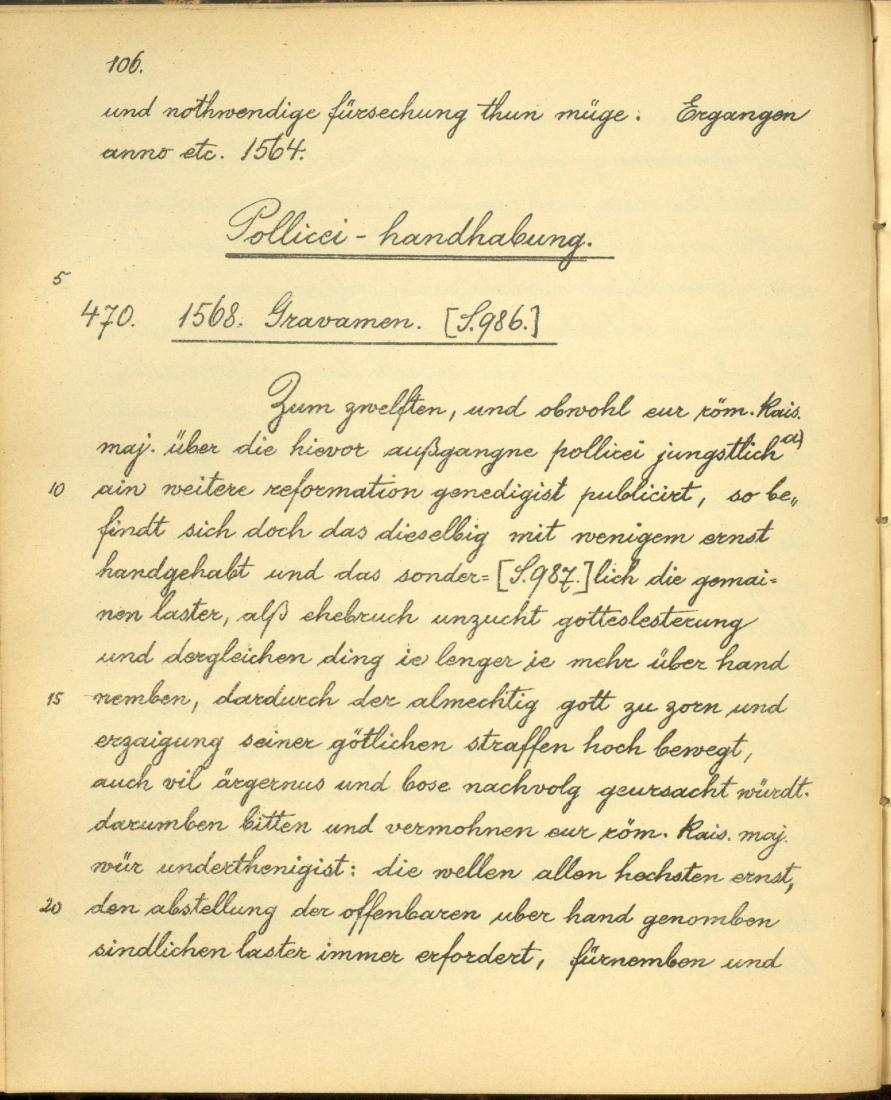 106.
und nothwendige fürsechung thun müge. Ergangen
anno etc. 1564.
Pollicei-handhabung.
5
470. 1568. Gravamen. [S.986.]
Zum zwelften, und obwohl eur röm. Kais.
maj. über die hievor außgangne pollicei jungstlich a)
10 ain weitere reformation genedigist publicirt, so be„
findt sich doch das dieselbig mit wenigem ernst
handgehabt und das sonder=[S.987.]lich die gemai=
nen laster, alß ehebruch unzucht gotteslesterung
und dergleichen ding ie lenger ie mehr über hand
15 nemben, dardurch der almechtig gott zu zorn und
erzaigung seiner götlichen straffen hoch bewegt,
auch vil ärgernus und bose nachvolg geursacht würdt.
darumben bitten und vermohnen eur röm. Kais. maj.
wür underthenigist: die wellen allen hechsten ernst,
20 den abstellung der offenbaren uber hand genomben
sindlichen laster immer erfordert, fürnemben und